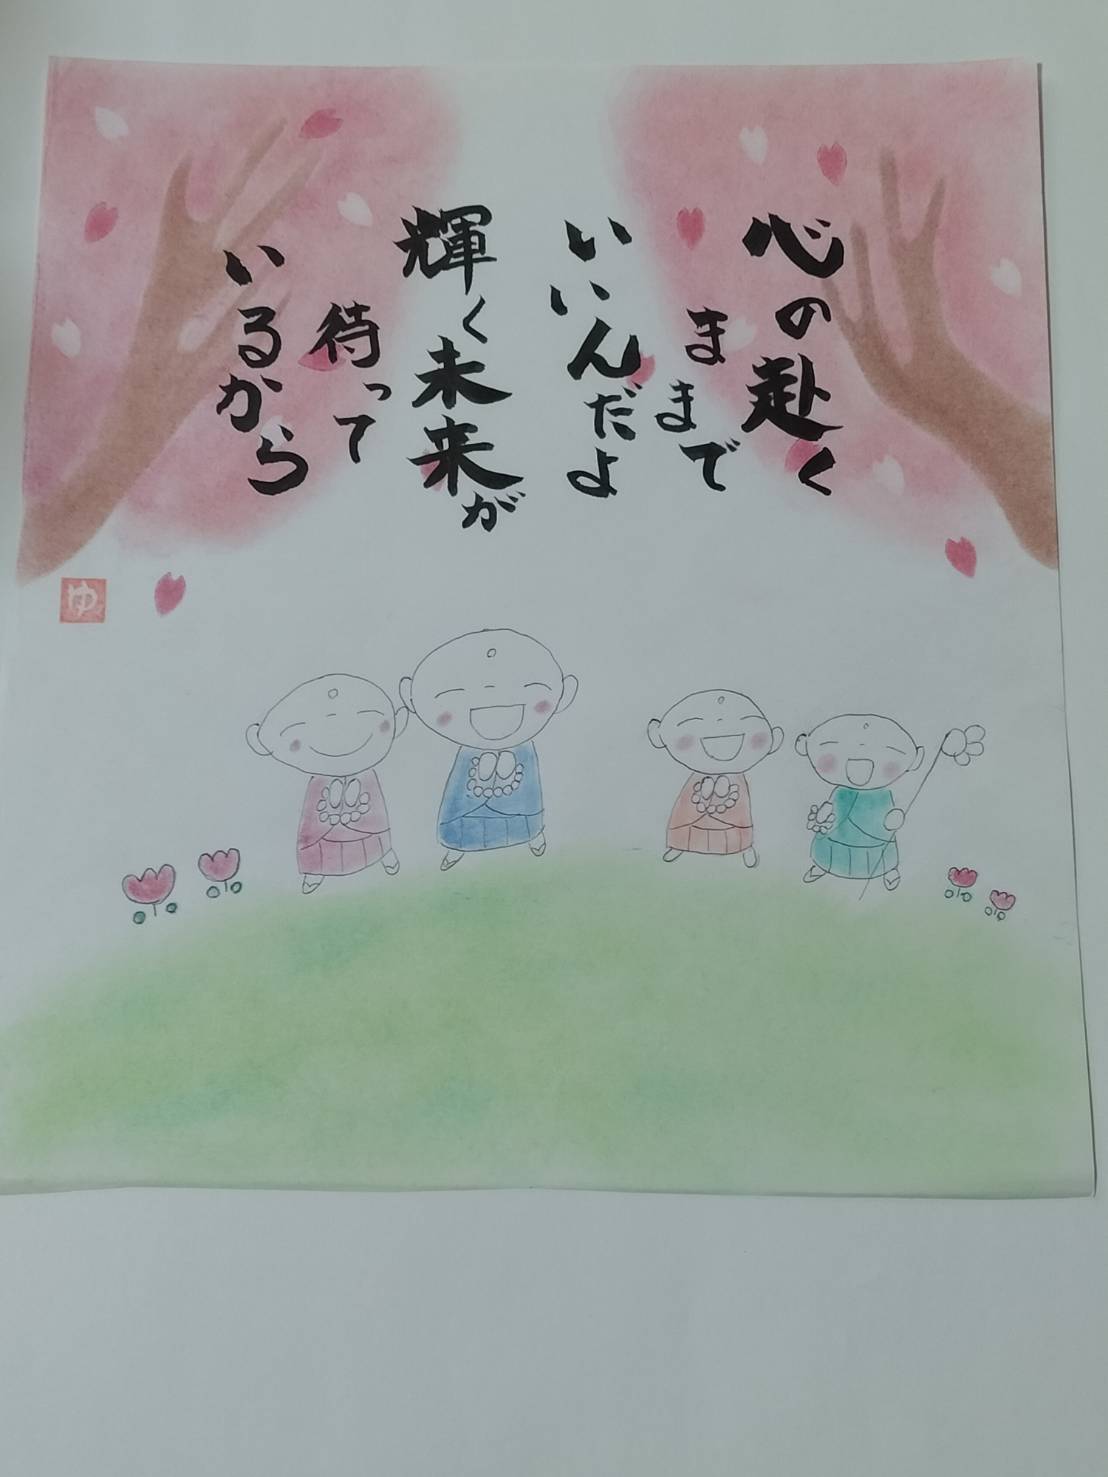 心の赴く
ままで
いいんだよ
輝く未来が
待って
いるから
ゆ